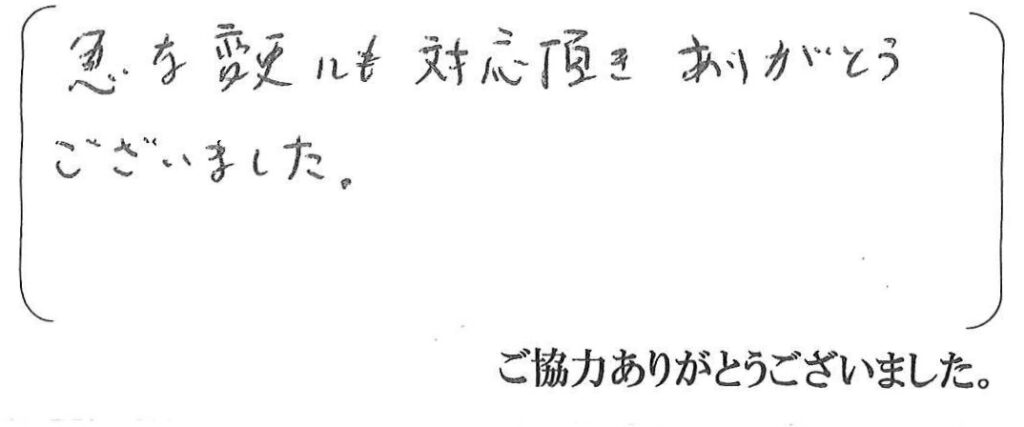 急な変更にも対応頂きありがとう
ございました。
ご協力ありがとうございました。